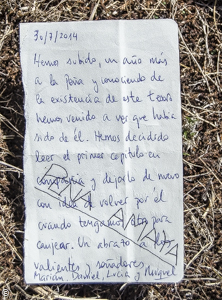 30/7/2014
Hemos subido, un año más
a la Peña y conociendo de
la existencia de este tesoro
hemos venido a ver que había
sido de él. Hemos decidido
leer el primer capítulo en
compañía y dejarlo de nuevo
con idea de volver por él
cuando tengamos otro para
canjear. Un abrazo a los
valientes y soñadores.
Marian, Daniel, Lucía y Miguel